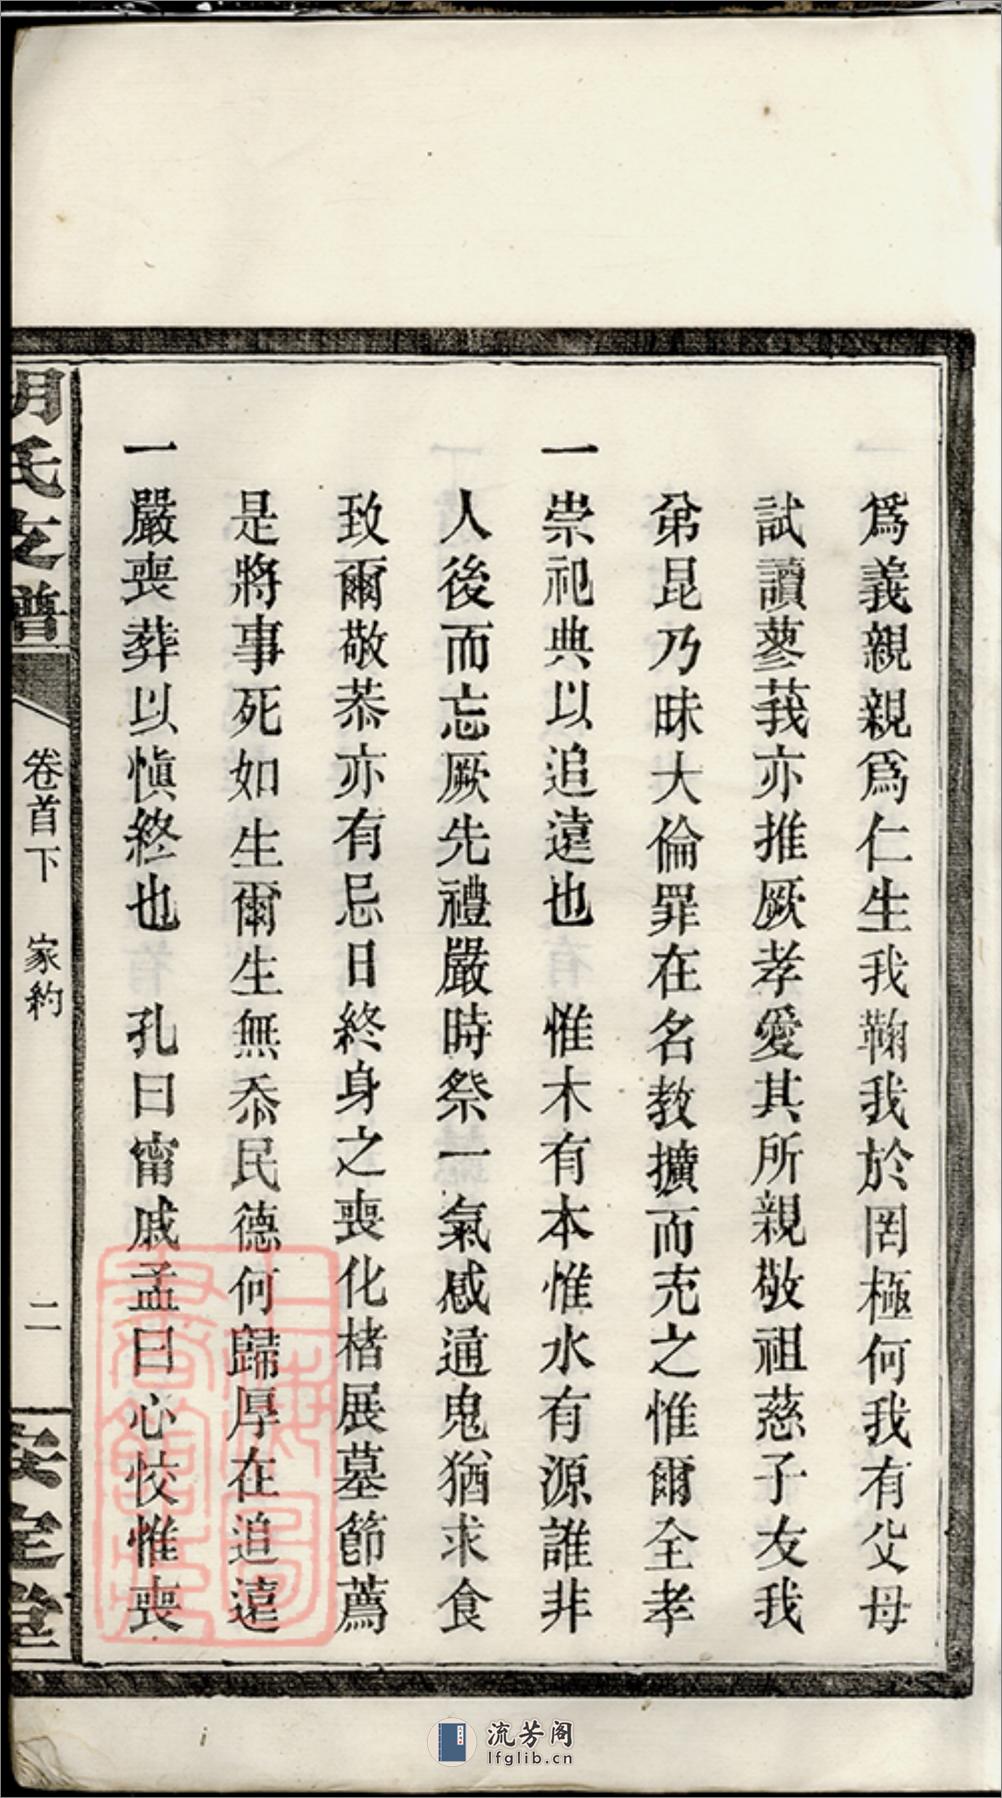 爲義親親爲仁生我鞠我於罔極何我有父母
試讀蓼莪亦推厥孝愛其所親敬祖慈子友我
弟昆乃昧大倫罪在名教擴而充之惟爾全孝
一崇祀典以追遠也　惟木有本惟水有源誰非
人後而忘厥先禮嚴時祭一氣感通鬼猶求食
致爾敬恭亦有忌日終身之喪化楮展墓節薦
是將事死如生爾生無忝民德何歸厚在追遠
一嚴喪葬以愼終也　孔曰甯戚孟曰心恔惟喪
胡氏支譜
卷首下　家約
二
安定堂
上海圖書館藏
流芳阁
lfglib.cn